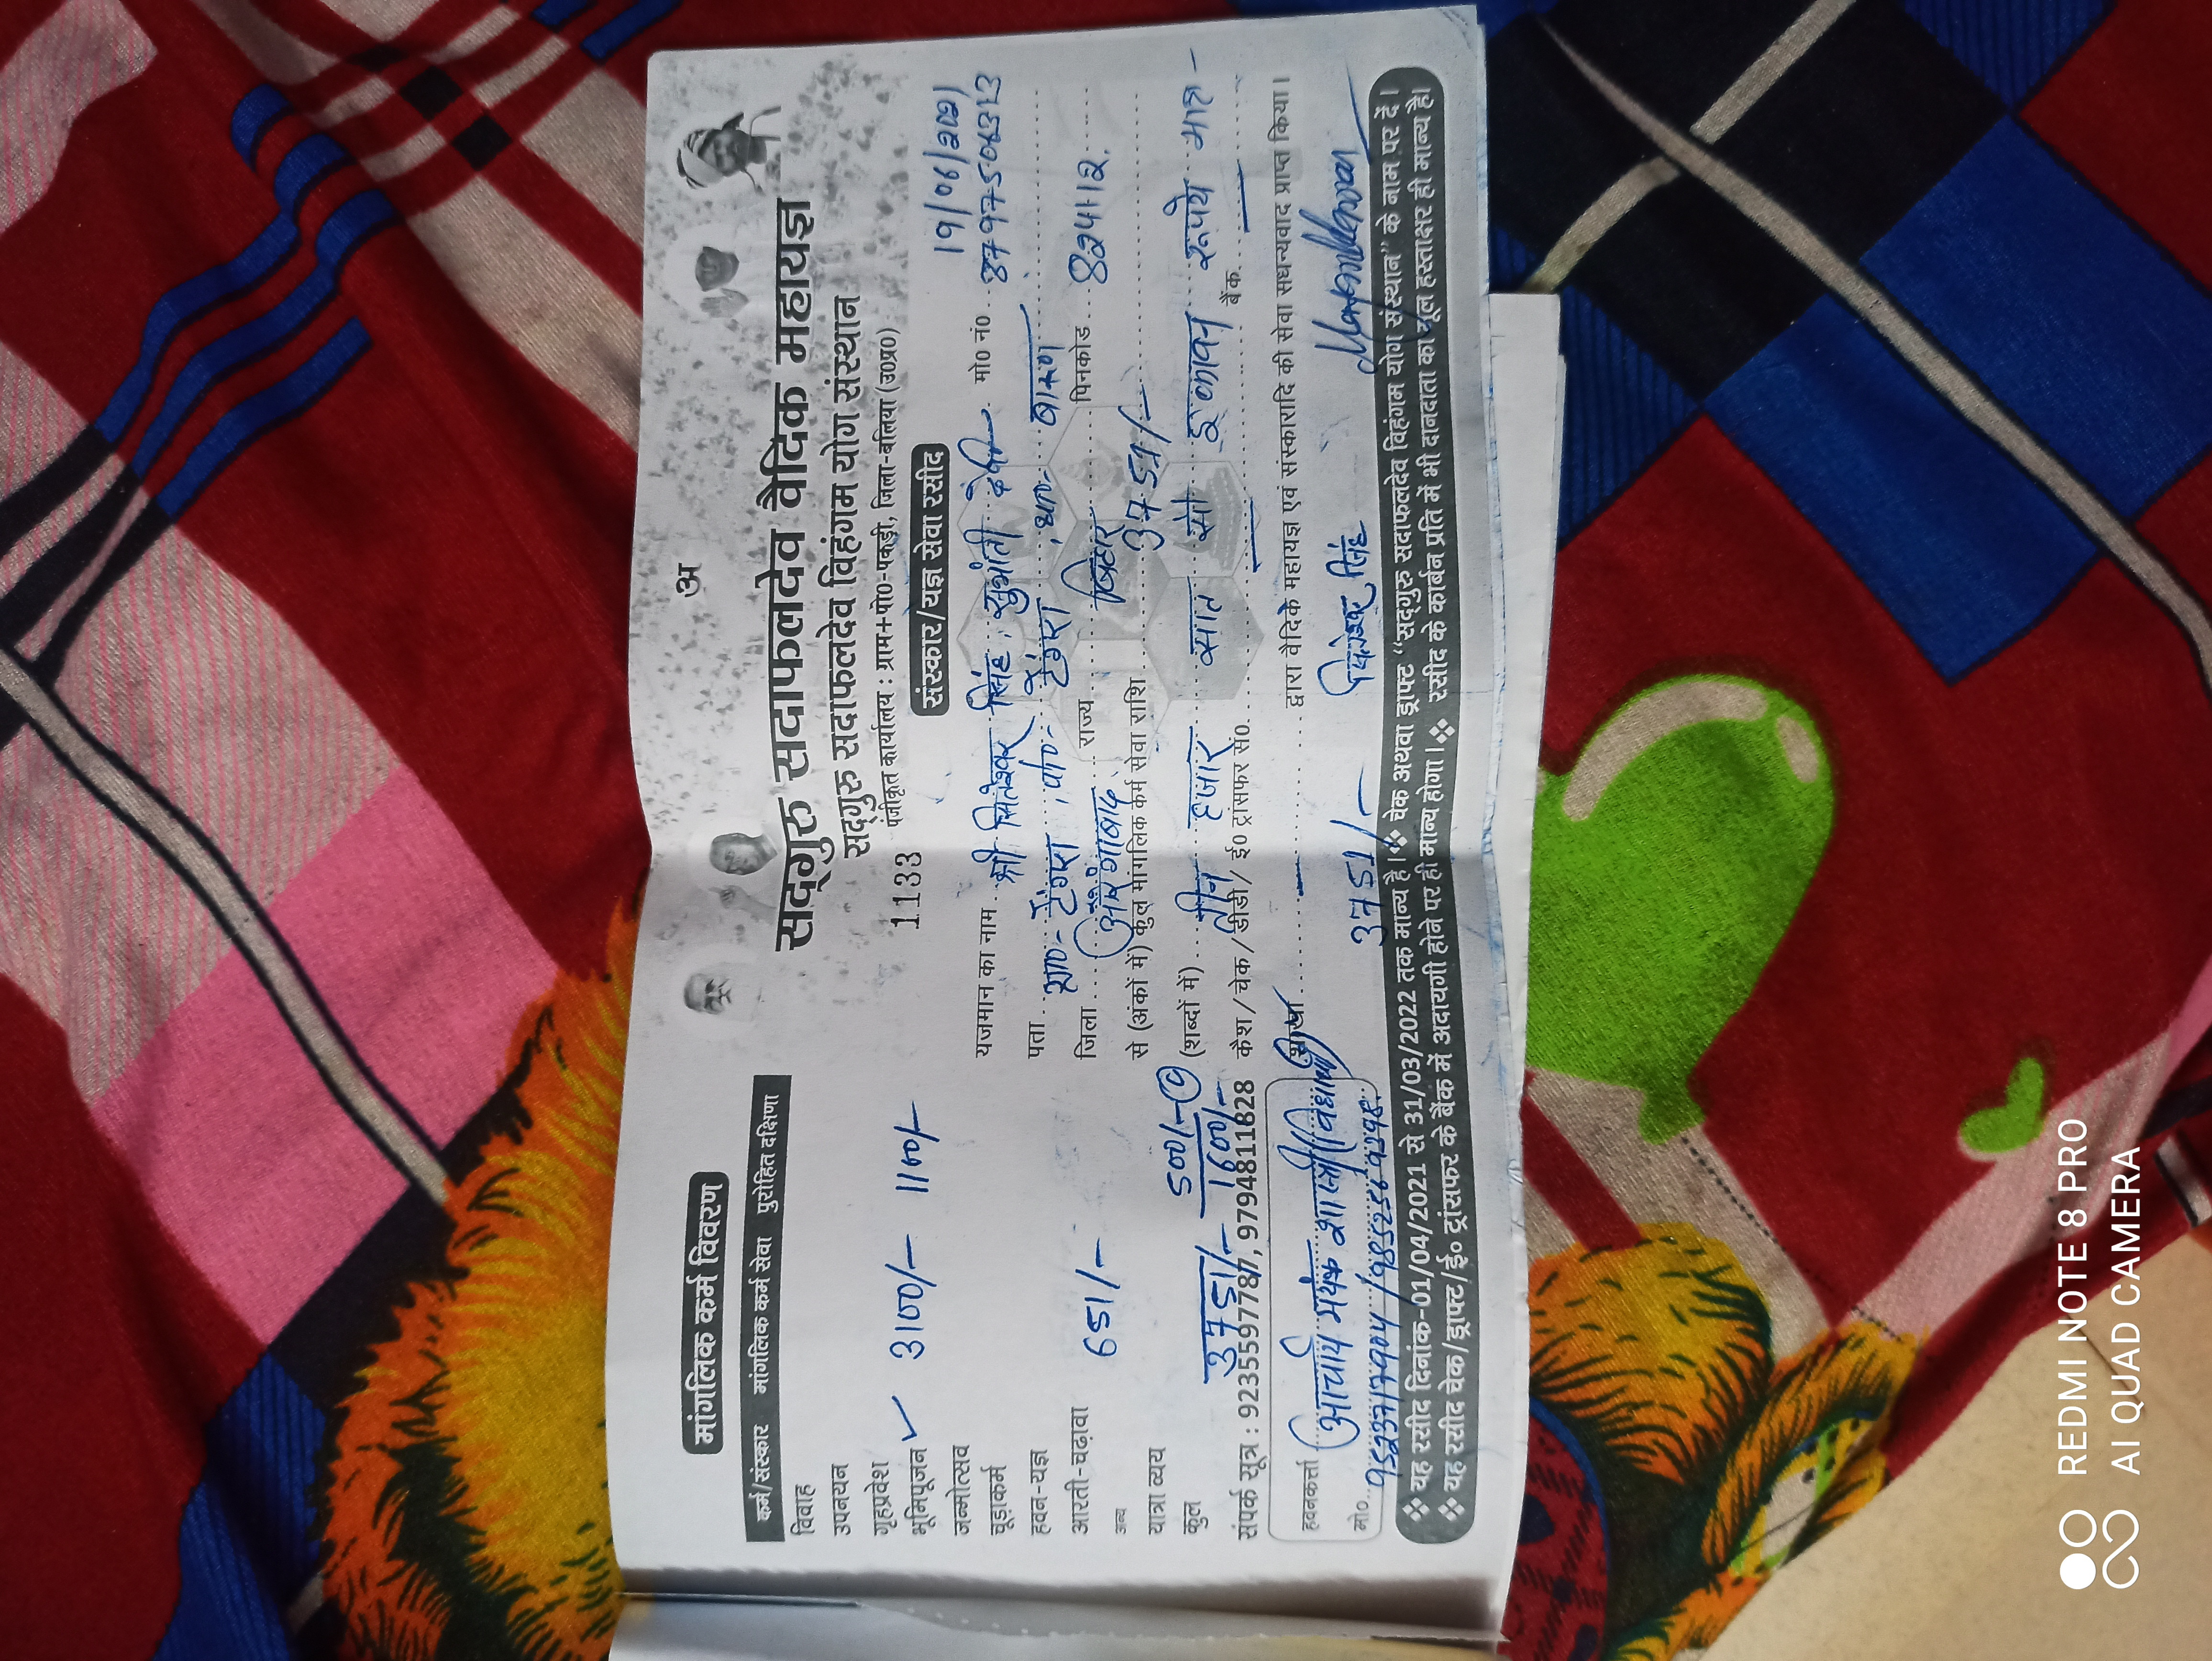 अ
सद्गुरु सदाफलदेव वैदिक महायज्ञ
सद्गुरु सदाफलदेव विहंगम योग संस्थान
1133 पंजीकृत कार्यालय : ग्राम+पो0-पकड़ी, जिला-बलिया (उ0प्र0)
संस्कार/यज्ञ सेवा रसीद
19/06/2021
यजमान का नाम श्री सिंह, देवी मो0 नं0
पता टेंगरा, पो०- टेंगरा, था०- बारुण
जिला औरंगाबाद राज्य बिहार पिनकोड 824112
से (अंकों में) कुल मांगलिक कर्म सेवा राशि 3751/-
(शब्दों में) तीन हजार सात सौ इकावन रूपये मात्र -
कैश/चेक/डीडी/ई0 ट्रांसफर सं0 बैंक
शाखा द्वारा वैदिक महायज्ञ एवं संस्कारादि की सेवा सधन्यवाद प्राप्त किया।
3751/- सिंह
मांगलिक कर्म विवरण
कर्म/संस्कार मांगलिक कर्म सेवा पुरोहित दक्षिणा
विवाह
उपनयन
गृहप्रवेश
भूमिपूजन ✓ 3100/- 1100/-
जन्मोत्सव
चूड़ाकर्म
हवन-यज्ञ
आरती-चढ़ावा 651/-
अन्य
यात्रा व्यय 500/-
कुल 3751/- 1600/-
संपर्क सूत्र : 9235597787, 9794811828
हवनकर्त्ता आचार्य मयंक शास्त्री
मो०
❖ यह रसीद दिनांक-01/04/2021 से 31/03/2022 तक मान्य है।❖ चेक अथवा ड्राफ्ट "सद्गुरु सदाफलदेव विहंगम योग संस्थान" के नाम पर दें।
❖ यह रसीद चेक/ड्राफ्ट/ई० ट्रांसफर के बैंक में अदायगी होने पर ही मान्य होगा।❖ रसीद के कार्बन प्रति में भी दानदाता का मूल हस्ताक्षर ही मान्य है।
REDMI NOTE 8 PRO
AI QUAD CAMERA